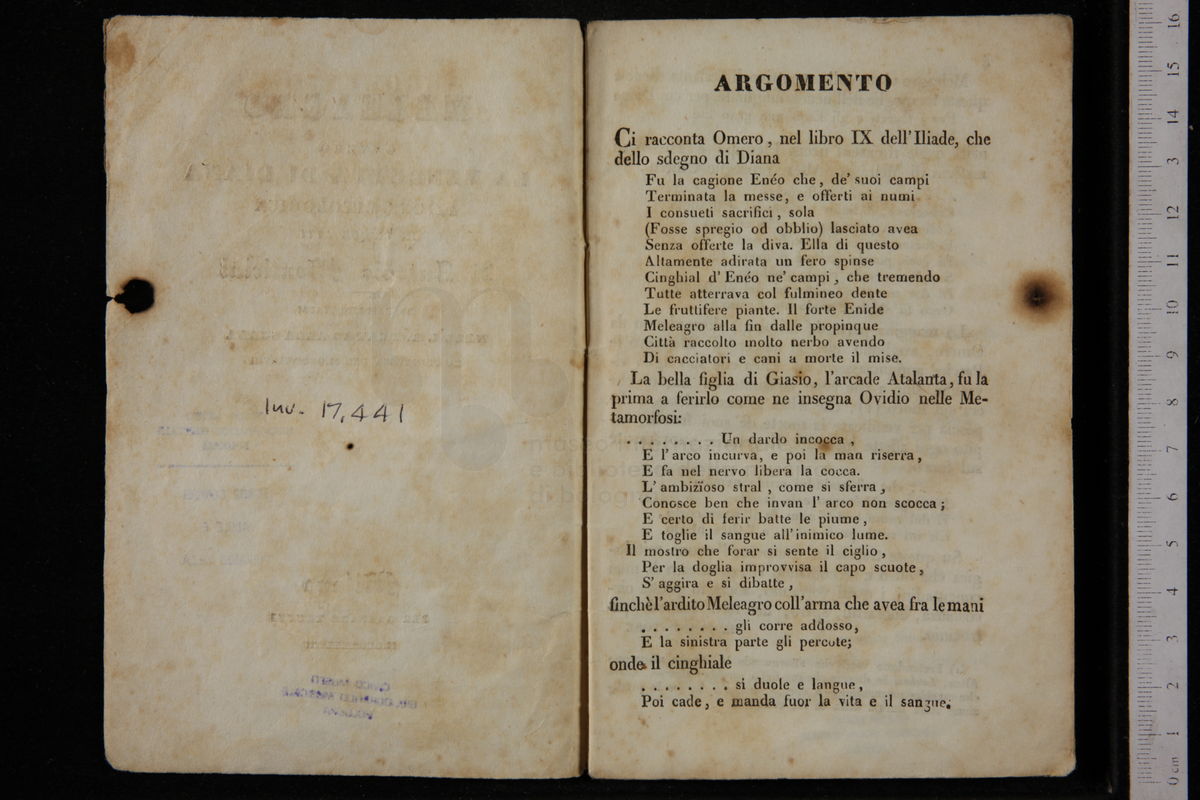 Inv. 17,441
ARGOMENTO
Ci racconta Omero, nel libro IX dell'Iliade, che
dello sdegno di Diana
Fu la cagione Enéo che, de' suoi campi
Terminata la messe, e offerti ai numi
I consueti sacrifici, sola
(Fosse spregio od obblio) lasciato avea
Senza offerte la diva. Ella di questo
Altamente adirata un fero spinse
Cinghial d' Enéo ne' campi, che tremendo
Tutte atterrava col fulmineo dente
Le fruttifere piante. Il forte Enide
Meleagro alla fin dalle propinque
Città raccolto molto nerbo avendo
Di cacciatori e cani a morte il mise.
La bella figlia di Giasio, l'arcade Atalanta, fu la
prima a ferirlo come ne insegna Ovidio nelle Me-
tamorfosi:
. . . . . . . . Un dardo incocca,
E l'arco incurva, e poi la man riserra,
E fa nel nervo libera la cocca.
L' ambizïoso stral, come si sferra,
Conosce ben che invan l' arco non scocca;
E certo di ferir batte le piume,
E toglie il sangue all'inimico lume.
Il mostro che forar si sente il ciglio,
Per la doglia improvvisa il capo scuote,
S' aggira e si dibatte,
finchè l'ardito Meleagro coll'arma che avea fra le mani
. . . . . . . . gli corre addosso,
E la sinistra parte gli percote;
onde il cinghiale
. . . . . . . . si duole e langue,
Poi cade, e manda fuor la vita e il sangue.
0 cm 1 2 3 4 5 6 7 8 9 10 11 12 13 14 15 16